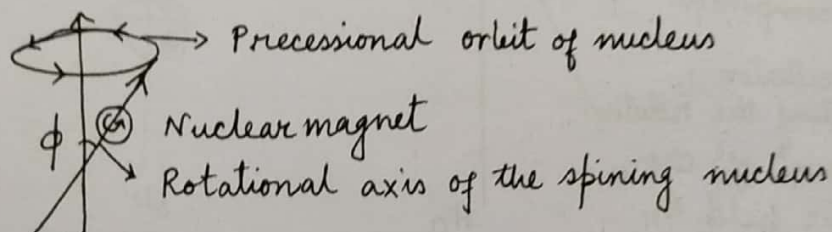 Precessional orbit of nucleus
Nuclear magnet
ϕ
Rotational axis of the spining nucleus